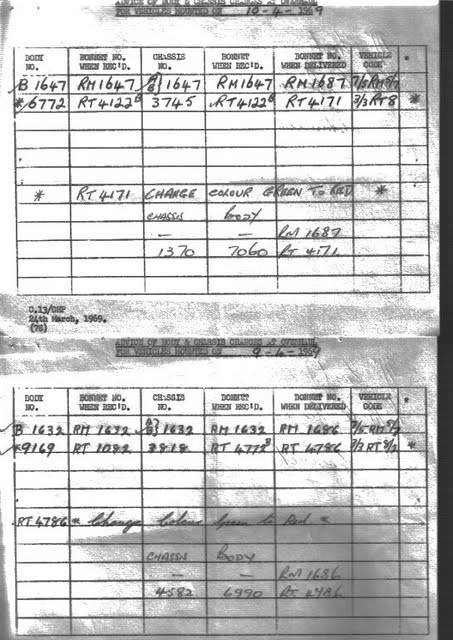 ADVICE OF BODY & CHASSIS CHANGES AT OVERHAUL
FOR VEHICLES MOUNTED ON 10-4-1969
BODY NO. BONNET NO. WHEN REC'D. CHASSIS NO. BONNET WHEN REC'D. BONNET NO. WHEN DELIVERED VEHICLE CODE *
B 1647 RM 1647 A B} 1647 RM 1647 RM 1687 7/5 RM 5/7
* 6772 RT 4122 3745 RT 4122 RT 4171 3/3 RT 8 *
* RT 4171 CHANGE COLOUR GREEN TO RED *
CHASSIS BODY
— — RM 1687
1370 7060 RT 4171
C.13/CHP
24th March, 1969.
(76)
ADVICE OF BODY & CHASSIS CHANGES AT OVERHAUL
FOR VEHICLES MOUNTED ON 9-4-1969
BODY NO. BONNET NO. WHEN REC'D. CHASSIS NO. BONNET WHEN REC'D. BONNET NO. WHEN DELIVERED VEHICLE CODE
B 1632 RM 1632 A B} 1632 RM 1632 RM 1686 7/5 RM 5/7
* 9169 RT 1082 RT 4772 RT 4786 3/3 RT 8/2 *
RT 4786 * Change Colour Green to Red *
CHASSIS BODY
— — RM 1686
4582 6990 RT 4786